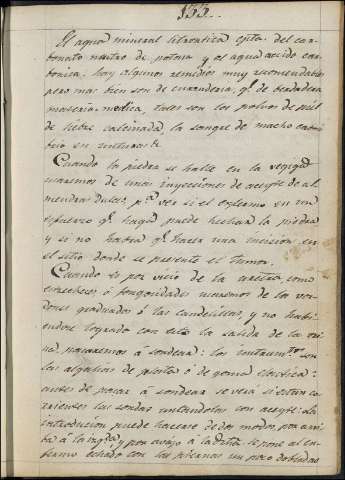 133..
El agua mineral litrontica cpta. del car-
bonato neutro de potasa y el agua acido car-
bonica: hay algunos remedios muy recomendables
pero mas bien son de curanderia, qe. de verdadera
materia-medica, tales son los polvos de piel
de liebre calcinada, la sangre de macho cabri
brio en
Cuando la piedra se halle en la vegiga
usaremos de unas inyecciones de aceyte de al-
mendras dulces, pa. ver si el enfermo en un
esfuerzo qe. haga puede hechar la piedra
y si no habra qe. hacer una incision en
el sitio donde se presente el tumor.
Cuando es por vicio de la uretra, como
estrecheces, ó fongosidades usaremos de los cor-
dones graduados ó las candelillas, y no habi-
endose logrado con esto la salida de la ori-
na, pasaremos á sondear: los instrumtos. son
las algalias de plata ó de goma elastica:
antes de pasar á sondear se verá si estan co-
rrientes las sondas untandolas con aceyte: la
introducion puede hacerse de dos modos, por arri
ba á la ingla. y por avajo á la se pone al en-
fermo echado con las piernas un poco dobladas